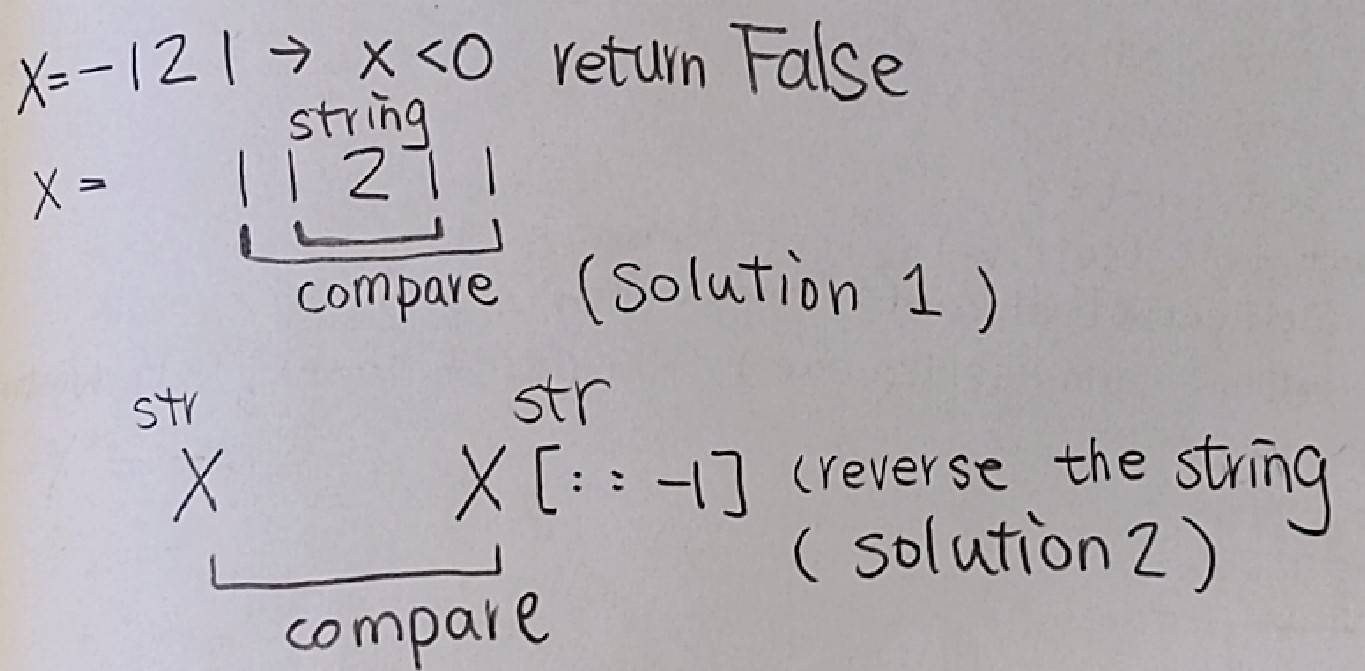 X=-121 → X<0 return False
string
X = 1 1 2 1 1
compare (Solution 1)
str str
X X[::-1] (reverse the string
(solution 2)
compare